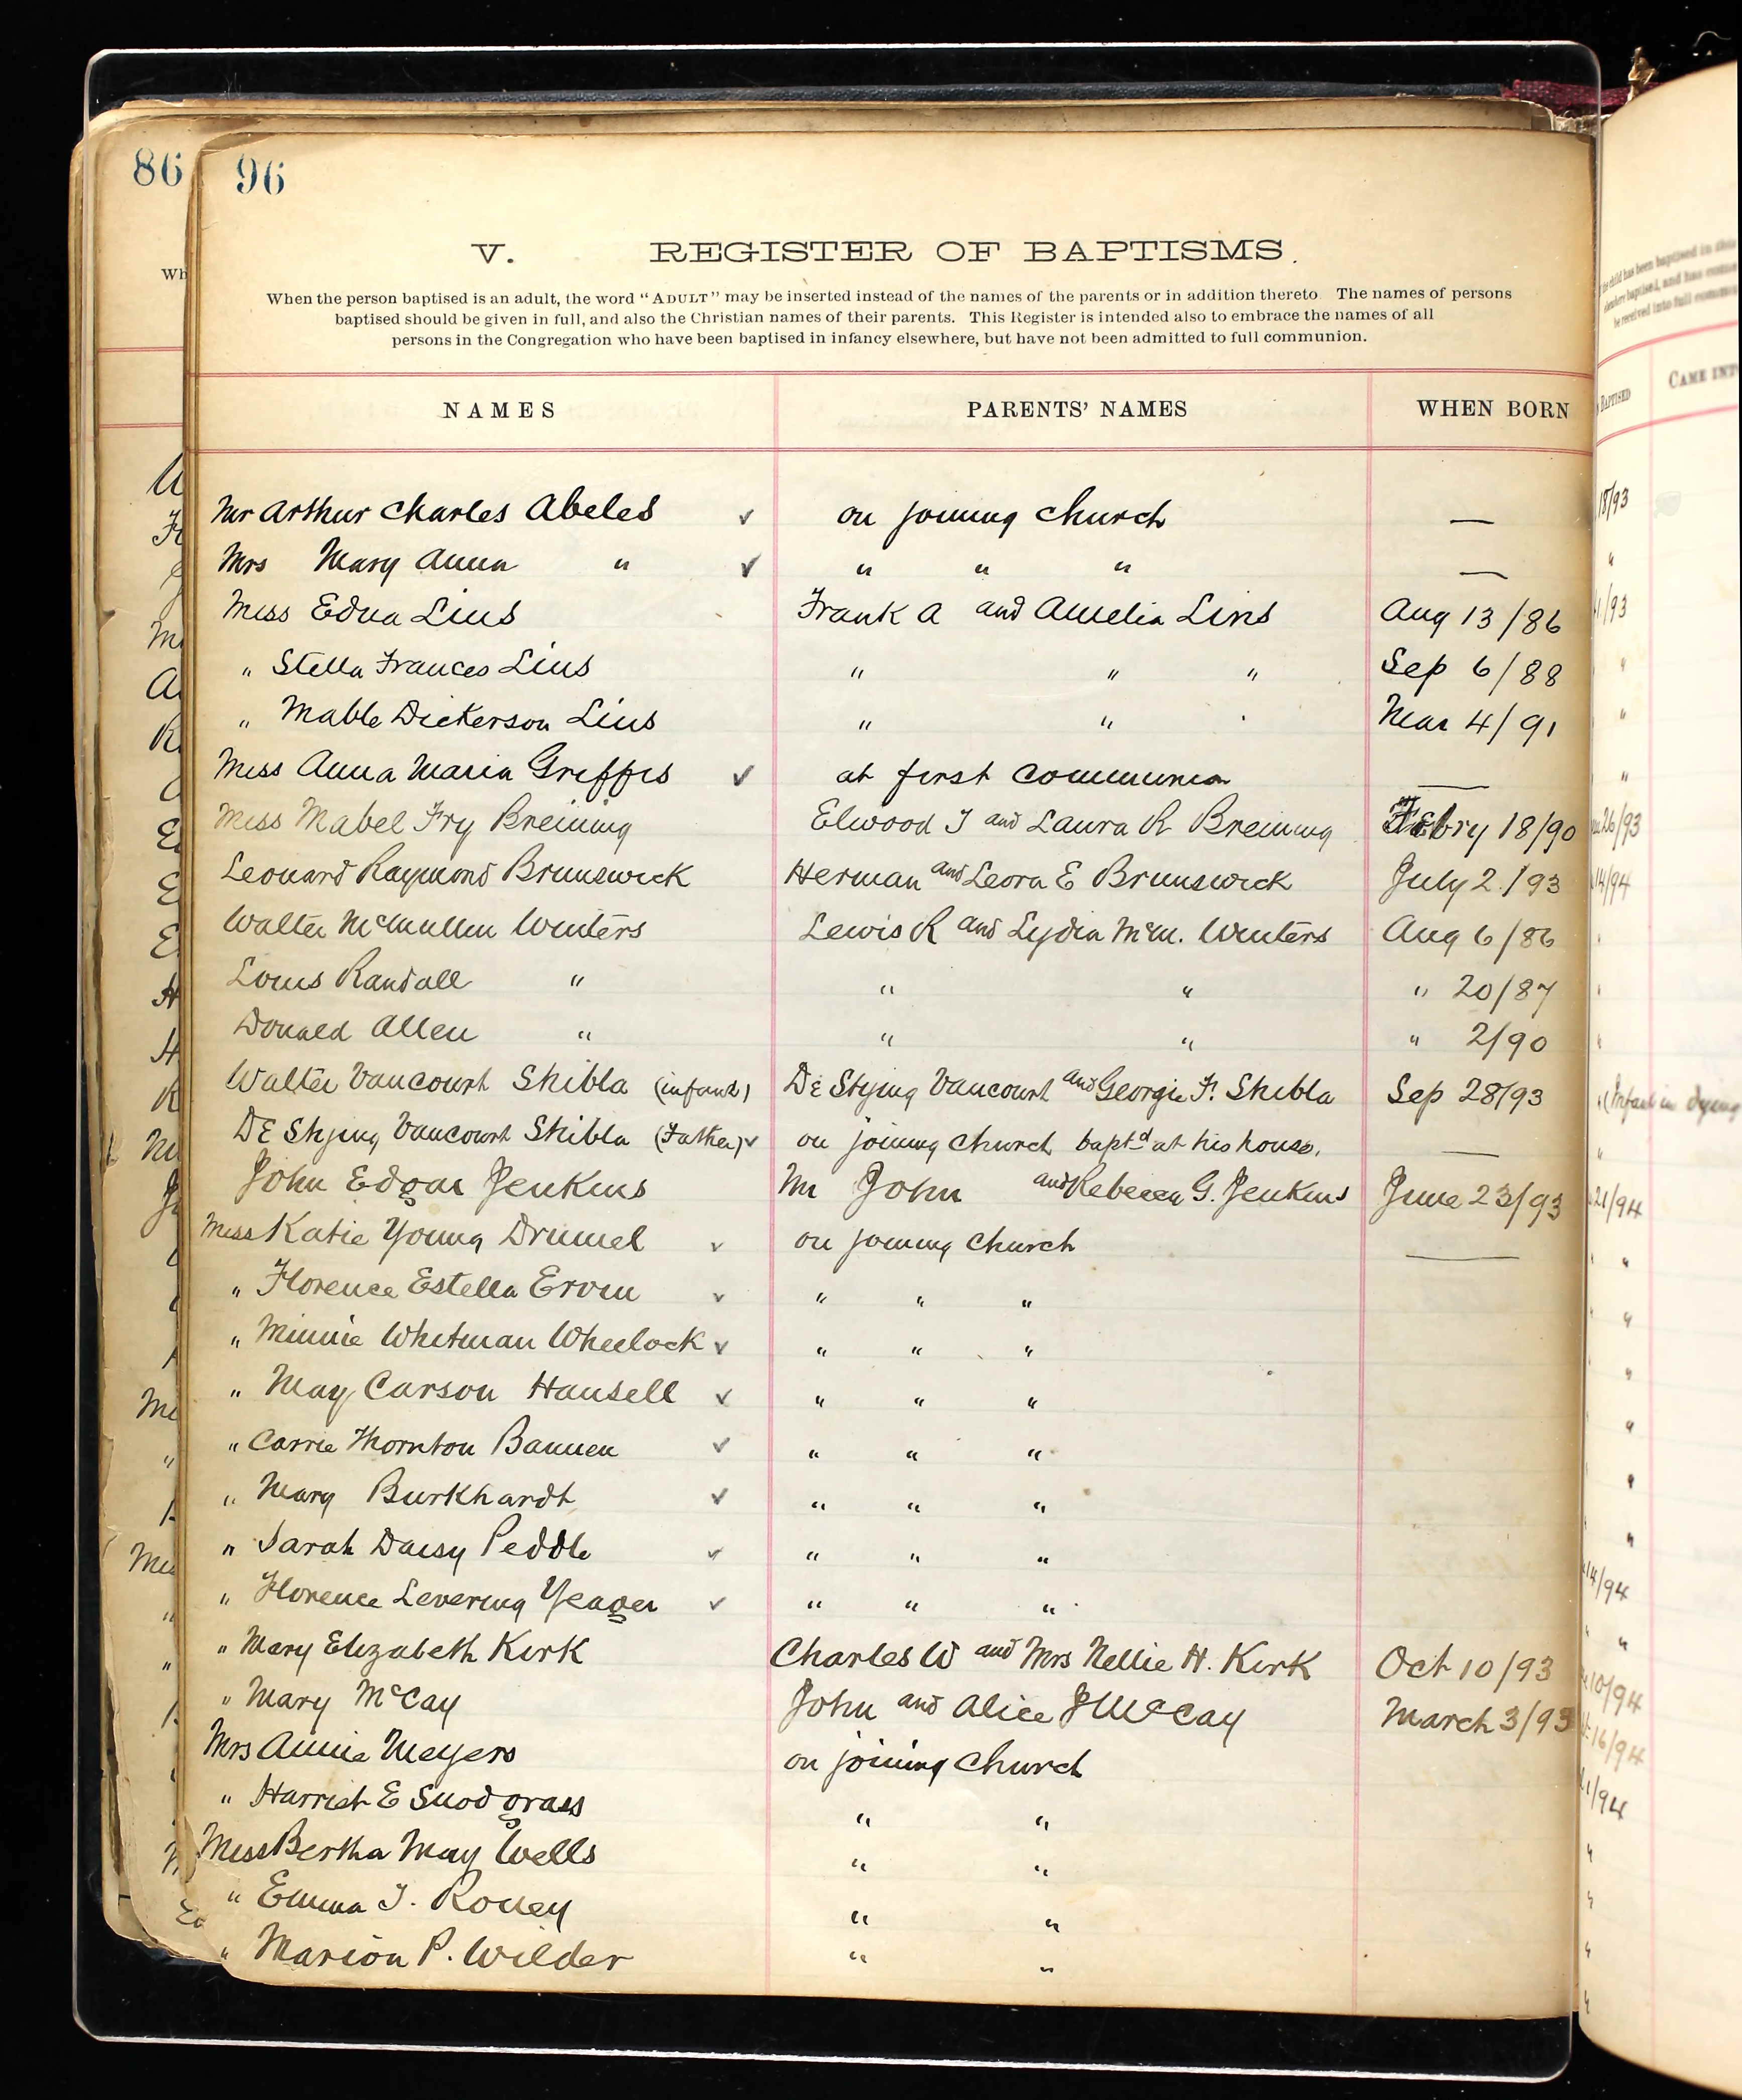 86 96
V. REGISTER OF BAPTISMS.
When the person baptised is an adult, the word "ADULT" may be inserted instead of the names of the parents or in addition thereto The names of persons
baptised should be given in full, and also the Christian names of their parents. This Register is intended also to embrace the names of all
persons in the Congregation who have been baptised in infancy elsewhere, but have not been admitted to full communion.
NAMES PARENTS' NAMES WHEN BORN
Mr Arthur Charles Abeles ✓ on joining church —
Mrs Mary Anna " ✓ " " " —
Miss Edna Lins Frank A and Amelia Lins Aug 13/86
" Stella Frances Lins " " " Sep 6/88
" Mable Dickerson Lins " " Mar 4/91
Miss Anna Maria Griffis ✓ at first communion —
Miss Mabel Fry Breining Elwood T and Laura R Breining Febry 18/90
Leonard Raymond Brunswick Herman and Leora E Brunswick July 2/93
Walter McMullen Winters Lewis R and Lydia McM. Winters Aug 6/86
Louis Randall " " " " 20/87
Donald Allen " " " " 2/90
Walter Vancourt Skibla (infant) Vancourt and Georgie F. Skibla Sep 28/93
Vancourt Skibla (Father) ✓ on joining church baptd at his house. —
John Edgar Jenkins Mr John and Rebecca G. Jenkins June 23/93
Miss Katie Young Drumel ✓ on joining church —
" Florence Estella Ervin ✓ " " "
" Minnie Whitman Wheelock ✓ " " "
" May Carson Hansell ✓ " " "
" Carrie Thornton Bannen ✓ " " "
" Mary Burkhardt ✓ " " "
" Sarah Daisy Peddle ✓ " " "
" Florence Levering Yeager ✓ " " "
" Mary Elizabeth Kirk Charles W and Mrs Nellie H. Kirk Oct 10/93
" Mary McCay John and Alice J McCay March 3/93
Mrs Annie Meyers on joining church
" Harriet E Snodgrass " "
Miss Bertha May Wells " "
" Emma T. Roney " "
" Marion P. Wilder " "